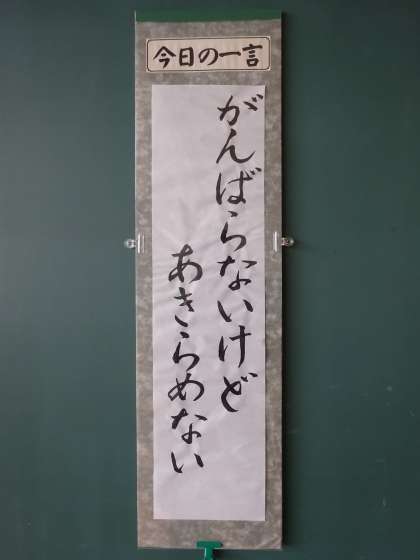 今日の一言
がんばらないけど
あきらめない